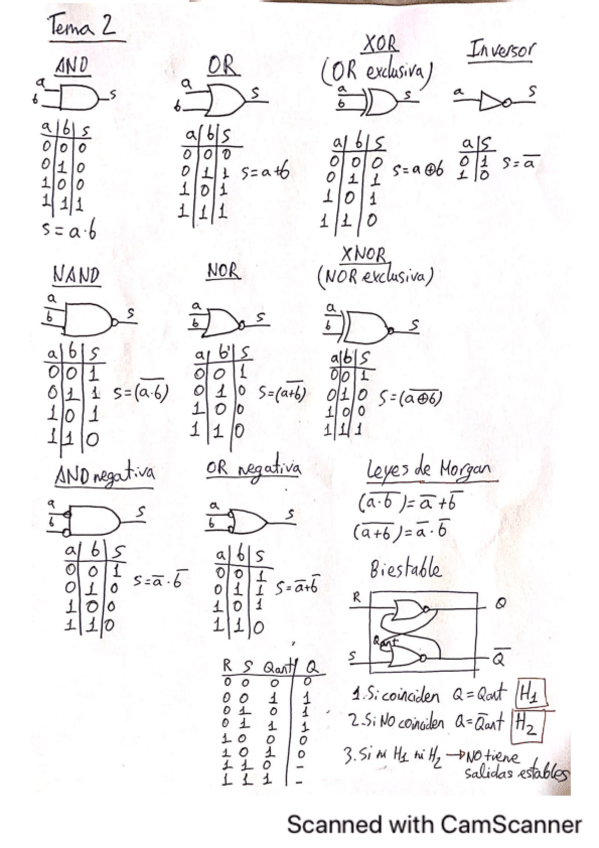 Tema 2
AND
a
b
s
a b s
0 0 0
0 1 0
1 0 0
1 1 1
s = a·b
OR
a
b
s
a b s
0 0 0
0 1 1
1 0 1
1 1 1
s=a+b
XOR
(OR exclusiva)
a
b
s
a b s
0 0 0
0 1 1
1 0 1
1 1 0
s=a⊕b
Inversor
a
s
a s
0 1
1 0
s=a̅
NAND
a
b
s
a b s
0 0 1
0 1 1
1 0 1
1 1 0
s=(a̅·̅b̅)
NOR
a
b
s
a b s
0 0 1
0 1 0
1 0 0
1 1 0
s=(a̅+̅b̅)
XNOR
(NOR exclusiva)
a
b
s
a b s
0 0 1
0 1 0
1 0 0
1 1 1
s=(a̅⊕̅b̅)
AND negativa
a
b
s
a b s
0 0 1
0 1 0
1 0 0
1 1 0
s=a̅·b̅
OR negativa
a
b
s
a b s
0 0 1
0 1 1
1 0 1
1 1 0
s=a̅+b̅
Leyes de Morgan
(a̅·̅b̅)=a̅+b̅
(a̅+̅b̅)=a̅·b̅
Biestable
R
Q
Qant
S
Q̅
R S Qant Q
0 0 0 0
0 0 1 1
0 1 0 1
0 1 1 1
1 0 0 0
1 0 1 0
1 1 0 -
1 1 1 -
1. Si coinciden Q=Qant H1
2. Si NO coinciden Q=Q̅ant H2
3. Si ni H1 ni H2 → NO tiene
salidas estables
Scanned with CamScanner